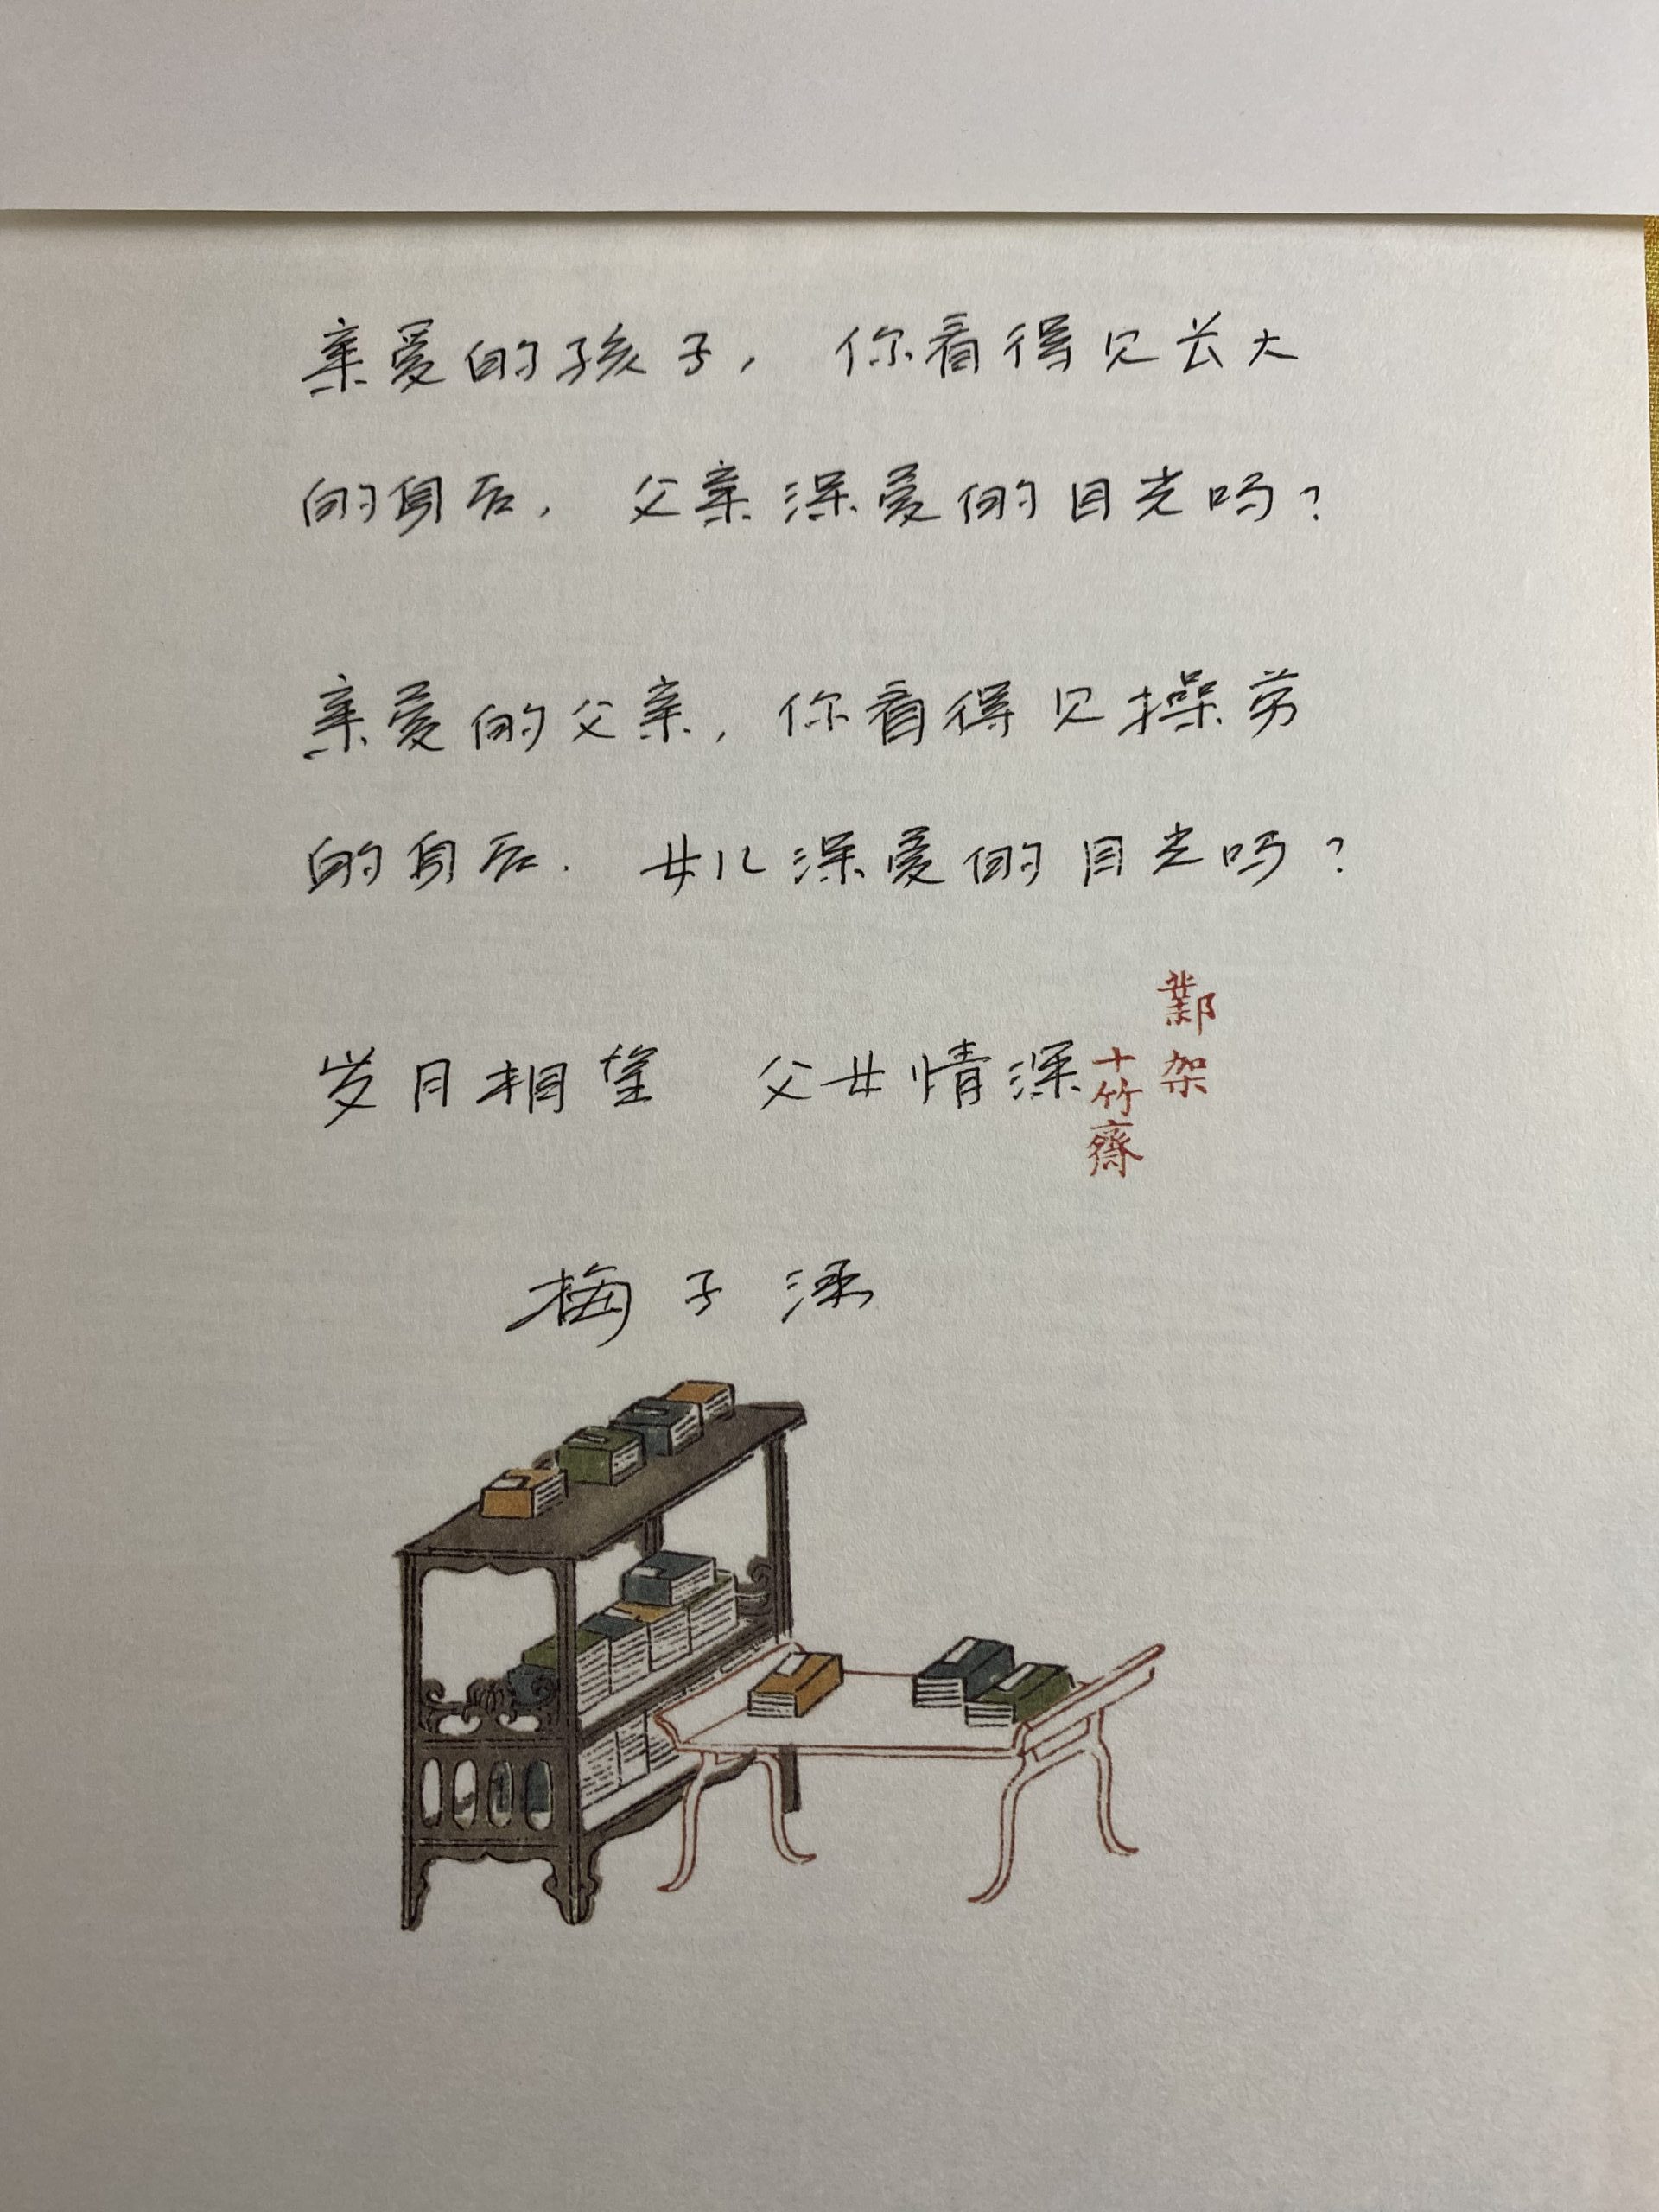 亲爱的孩子，你看得见长大
的身后，父亲深爱的目光吗？
亲爱的父亲，你看得见操劳
的身后，女儿深爱的目光吗？
岁月相望 父女情深
鄴架
十竹齋
梅子涵